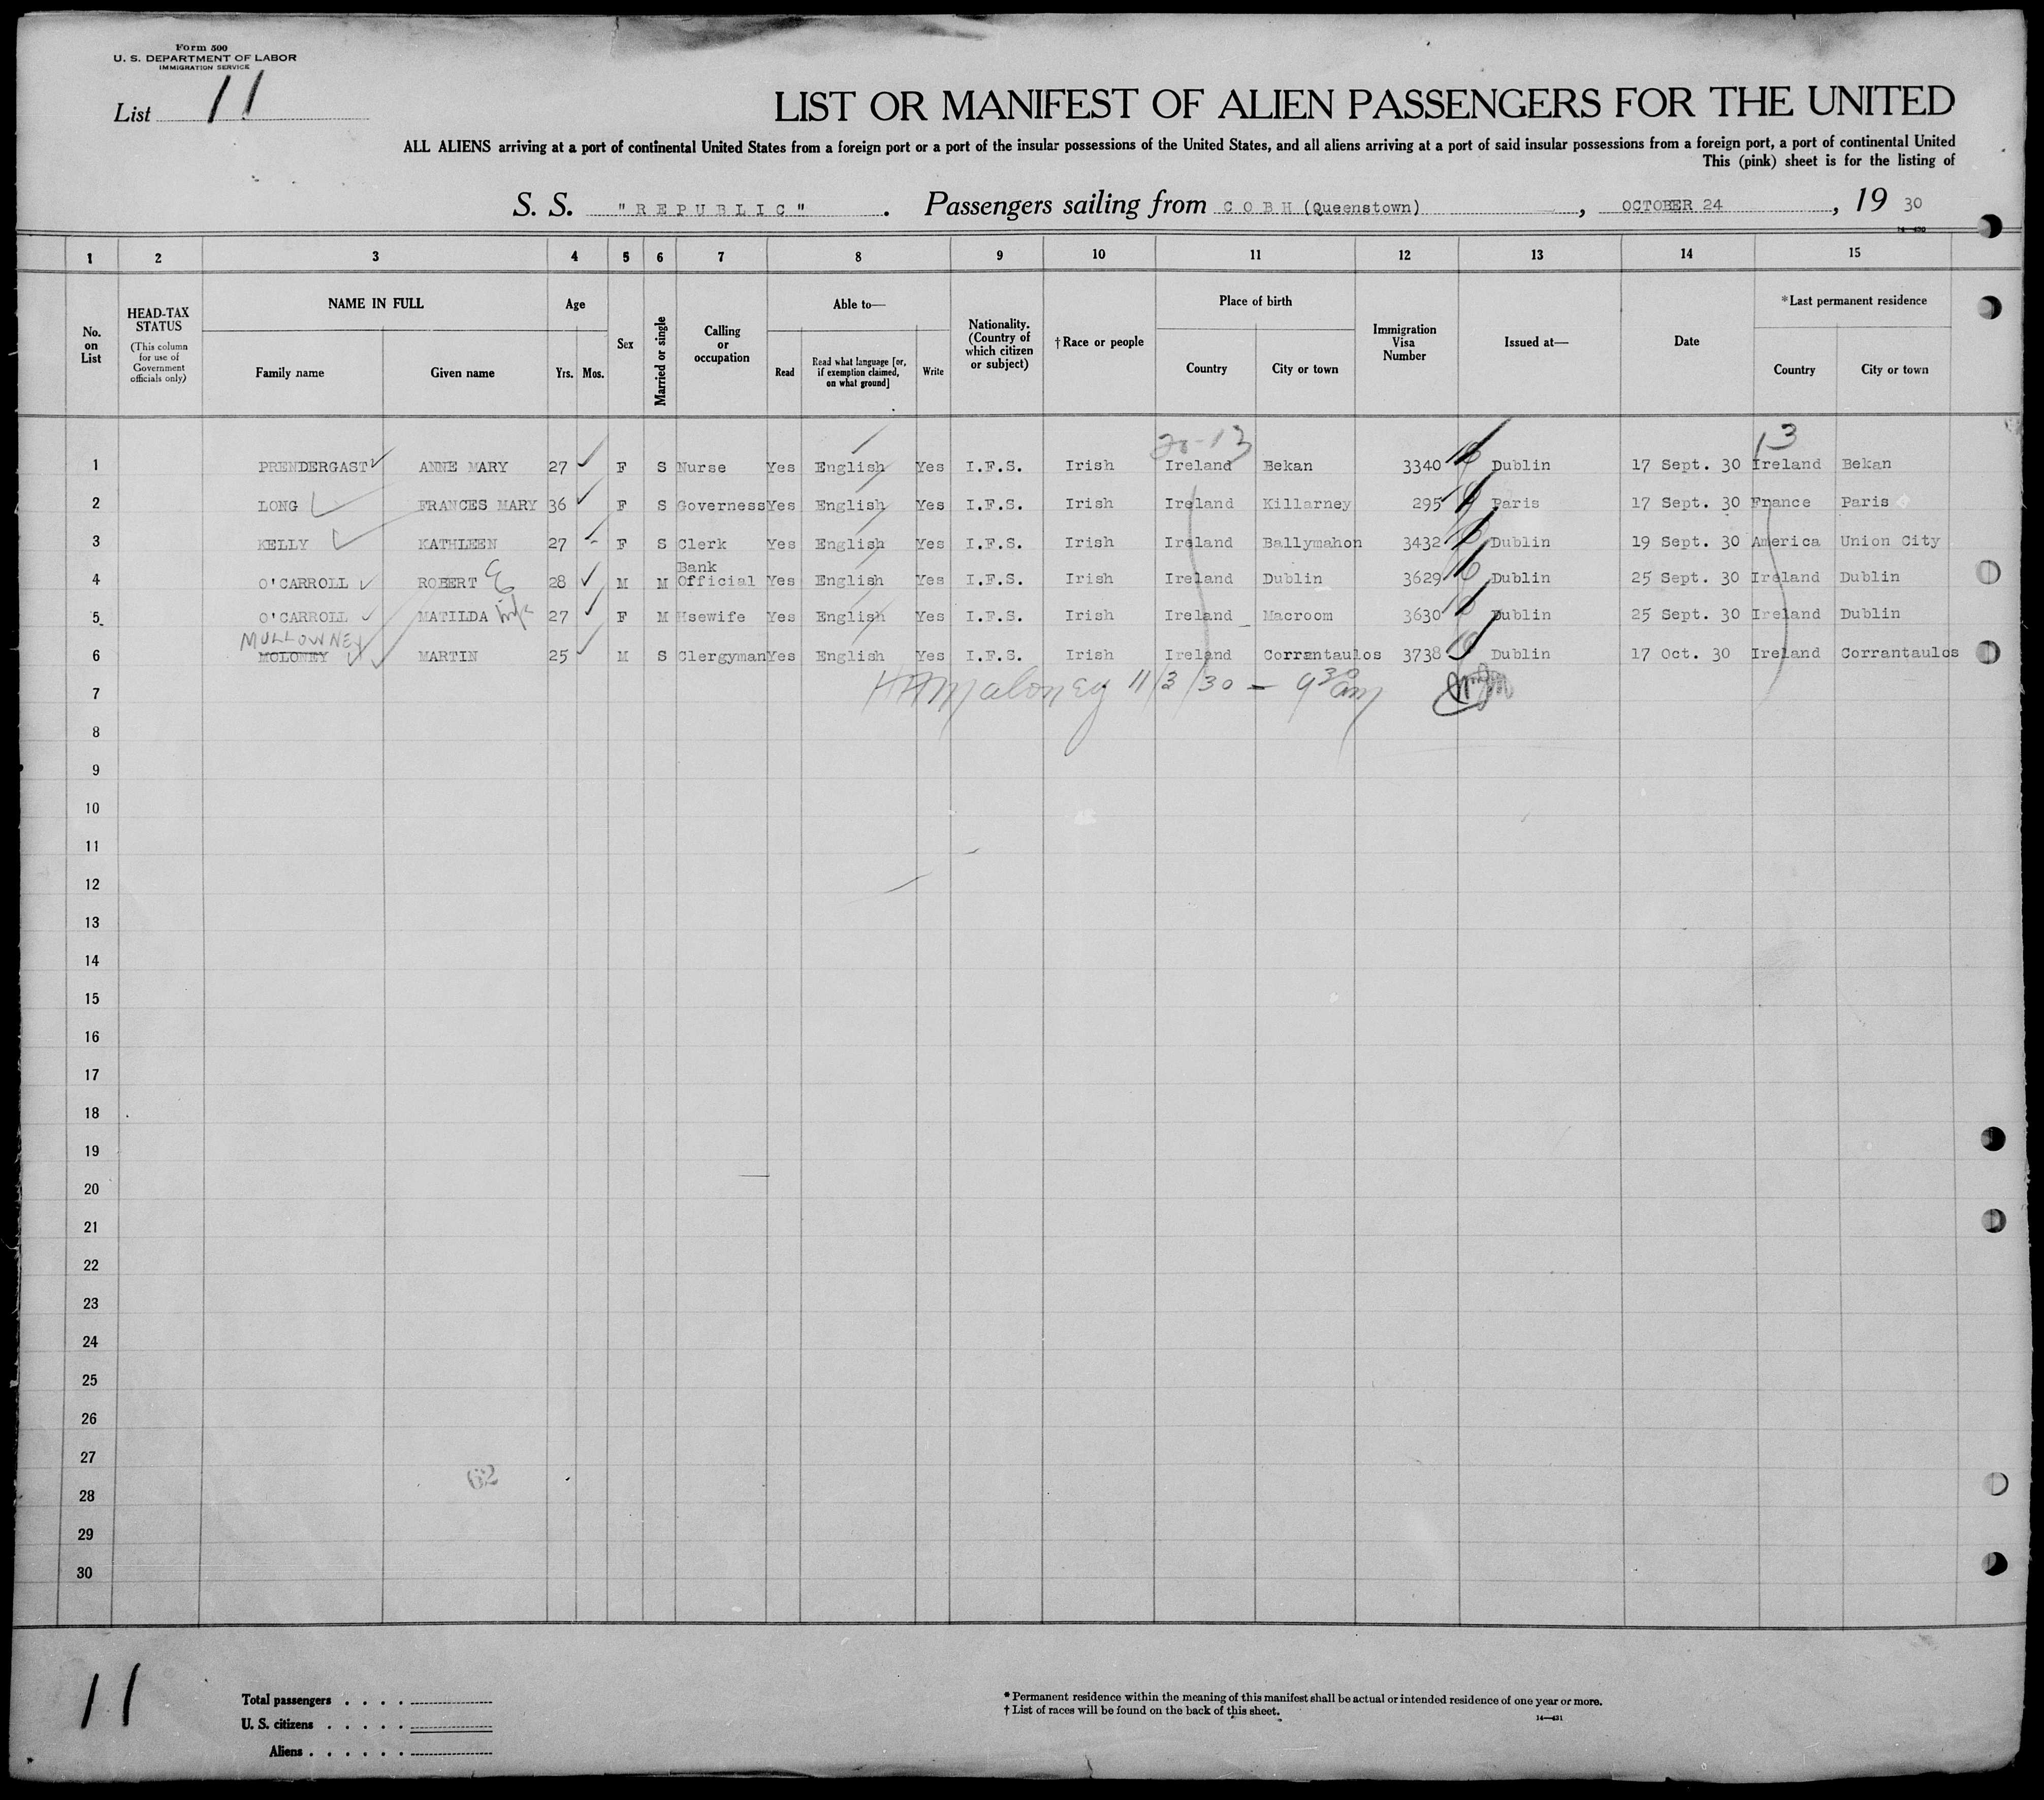 Form 500
U. S. DEPARTMENT OF LABOR
IMMIGRATION SERVICE
List 11
LIST OR MANIFEST OF ALIEN PASSENGERS FOR THE UNITED
ALL ALIENS arriving at a port of continental United States from a foreign port or a port of the insular possessions of the United States, and all aliens arriving at a port of said insular possessions from a foreign port, a port of continental United
This (pink) sheet is for the listing of
S. S. "REPUBLIC" . Passengers sailing from COBH (Queenstown) , OCTOBER 24 , 19 30
1 2 3 4 5 6 7 8 9 10 11 12 13 14 15
No. on List
HEAD-TAX STATUS (This column for use of Government officials only)
NAME IN FULL Family name Given name
Age Yrs. Mos.
Sex
Married or single
Calling or occupation
Able to— Read Read what language [or, if exemption claimed, on what ground] Write
Nationality. (Country of which citizen or subject)
†Race or people
Place of birth Country City or town
Immigration Visa Number
Issued at—
Date
*Last permanent residence Country City or town
20-13 13
1 PRENDERGAST ANNE MARY 27 F S Nurse Yes English Yes I.F.S. Irish Ireland Bekan 3340 Dublin 17 Sept. 30 Ireland Bekan
2 LONG FRANCES MARY 36 F S Governess Yes English Yes I.F.S. Irish Ireland Killarney 295 Paris 17 Sept. 30 France Paris
3 KELLY KATHLEEN 27 F S Clerk Yes English Yes I.F.S. Irish Ireland Ballymahon 3432 Dublin 19 Sept. 30 America Union City
4 O'CARROLL ROBERT 28 M M Bank Official Yes English Yes I.F.S. Irish Ireland Dublin 3629 Dublin 25 Sept. 30 Ireland Dublin
5 O'CARROLL MATILDA 27 F M Hsewife Yes English Yes I.F.S. Irish Ireland Macroom 3630 Dublin 25 Sept. 30 Ireland Dublin
MULLOWNEY
6 MOLONEY MARTIN 25 M S Clergyman Yes English Yes I.F.S. Irish Ireland Corrantaulos 3738 Dublin 17 Oct. 30 Ireland Corrantaulos
7 Maloney 11/3/30 — 9 30 am
8
9
10
11
12
13
14
15
16
17
18
19
20
21
22
23
24
25
26
27
62
28
29
30
11
Total passengers . . . .
U. S. citizens . . . . .
Aliens . . . . . .
* Permanent residence within the meaning of this manifest shall be actual or intended residence of one year or more.
† List of races will be found on the back of this sheet.
14—431